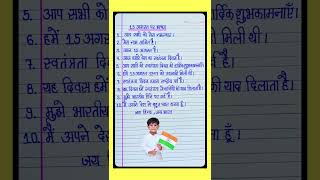 15 अगस्त पर भाषण
1. आप सभी को मेरा नमस्कार।
2. मेरा नाम अमित है।
3. आज 15 अगस्त है।
4. आज हमारे देश का स्वतंत्रता दिवस है।
5. आप सभी को स्वतंत्रता दिवस की हार्दिक शुभकामनाएँ।
6. हमें 15 अगस्त 1947 को आजादी मिली थी।
7. स्वतंत्रता दिवस हमारा राष्ट्रीय पर्व है।
8. यह दिवस हमें स्वतंत्रता सेनानियों की याद दिलाता है।
9. मुझे भारतीय होने पर गर्व है।
10. मैं अपने देश से बहुत प्यार करता हूँ।
जय हिन्द, जय भारत